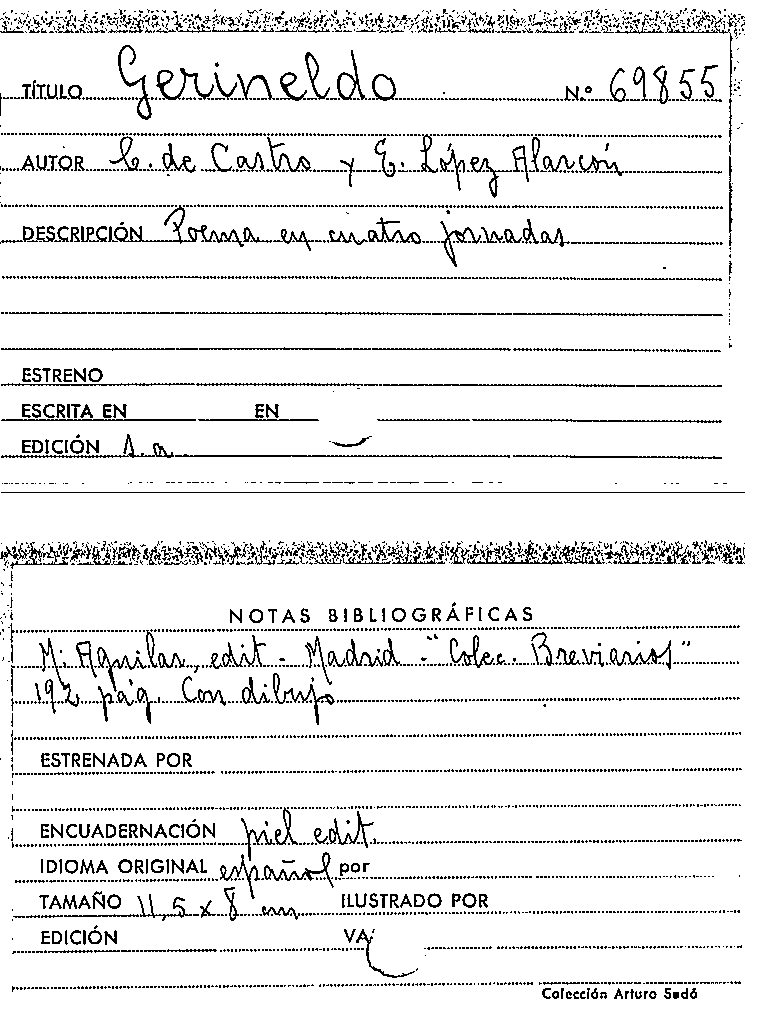 TÍTULO Gerineldo N.º 69855
AUTOR C. de Castro y E. López Alarcón
DESCRIPCIÓN Poema en cuatro jornadas
ESTRENO
ESCRITA EN EN
EDICIÓN s. a.
NOTAS BIBLIOGRÁFICAS
M. Aguilar, edit - Madrid - "Colec. Breviarios"
192 pág. Con dibujo
ESTRENADA POR
ENCUADERNACIÓN piel edit.
IDIOMA ORIGINAL español por
TAMAÑO 11,5 x 8 cm ILUSTRADO POR
EDICIÓN VA
Colección Arturo Sedó